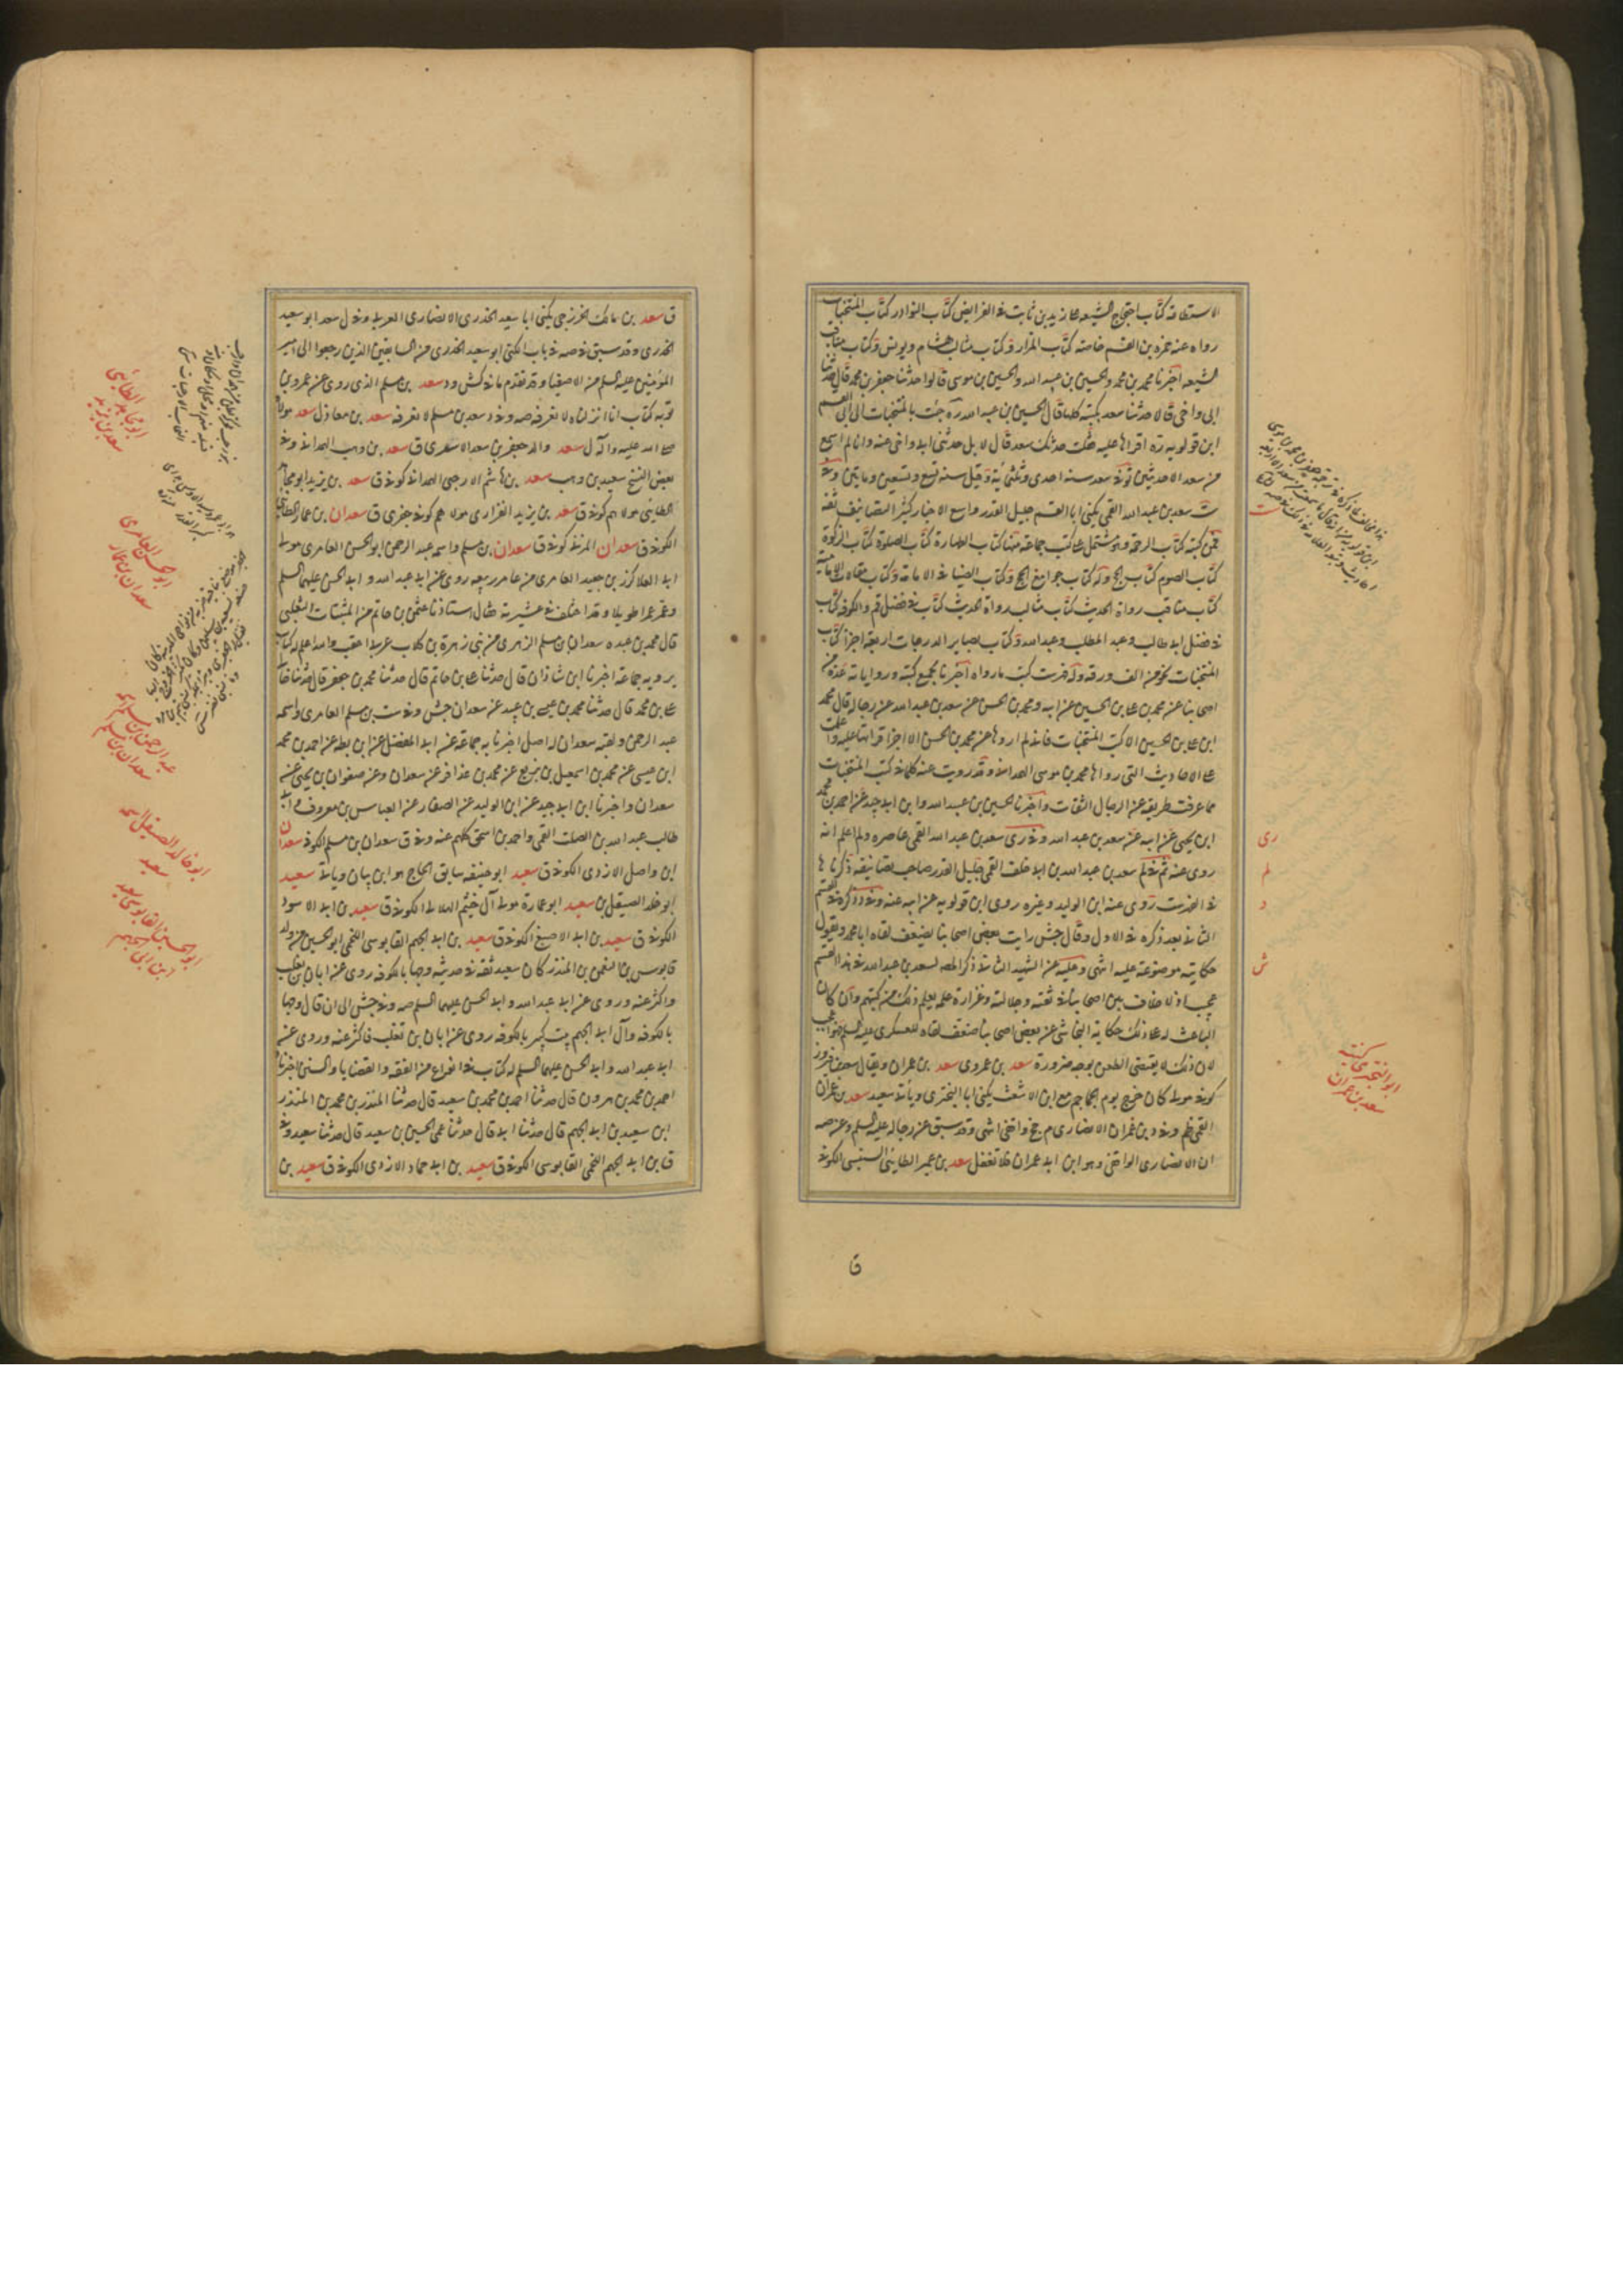 الاستطاعة كتاب احتجاج الشيعة على زيد بن ثابت في الفرايض كتاب النوادر كتاب المنتخبات
رواه عنه حمزة بن القسم خاصة كتاب المزار وكتاب مثالب هشام ويونس وكتاب مناقب
الشيعه اخبرنا محمد بن محمد والحسين بن عبد الله والحسين بن موسى قالوا حدثنا جعفر بن محمد قال حدثنا
ابى واخى قالا حدثنا سعد بكتبه كلها قال الحسين بن عبد الله ره جئت بالمنتخبات الى ابى القسم
ابن قولويه ره اقراها عليه فقلت حدثك سعد قال لا بل حدثنى ابى واخى عنه وانا لم اسمع
من سعد الا حديثين توفى سعد سنة احدى وثلثمائة وقيل سنة تسع وتسعين ومايتين وفى
ست سعد بن عبد الله القمى يكنى ابا القسم جليل القدر واسع الاخبار كثير التصانيف ثقة
فمن كتبه كتاب الرحمة وهو مشتمل على كتب جماعة منها كتاب الطهارة كتاب الصلوة كتاب الزكوة
كتاب الصوم كتاب الحج وله كتاب جوامع الحج وكتاب الضياء فى الامامة وكتاب مقالات الامامية
كتاب مناقب رواة الحديث كتاب مثالب رواة الحديث كتاب فى فضل قم والكوفة كتاب
فى فضل ابى طالب وعبد المطلب وعبد الله وكتاب بصاير الدرجات اربعة اجزاء كتاب
المنتخبات نحو من الف ورقة وله فهرست كتب ما رواه اخبرنا بجميع كتبه ورواياته عدة من
اصحابنا عن محمد بن على بن الحسين عن ابيه ومحمد بن الحسن عن سعد بن عبد الله عن رجاله قال محمد
ابن على بن الحسين الا كتب المنتخبات فانى لم اروها عن محمد بن الحسن الا اجزاء قراتها عليه واعلمت
على الاحاديث التى رواها محمد بن موسى الهمدانى وقد رويت عنه كلما فى كتب المنتخبات
مما عرفت طريقه عن الرجال الثقات واخبرنا الحسين بن عبيد الله وابن ابى جيد عن احمد بن محمد
ابن يحيى عن ابيه عن سعد بن عبد الله وفى رى سعد بن عبد الله القمى عاصره ولم اعلم انه
روى عنه ثم فى لم سعد بن عبد الله بن ابى خلف القمى جليل القدر صاحب تصانيف ذكرناها
فى الفهرست روى عنه ابن الوليد وغيره روى ابن قولويه عن ابيه عنه وفى د ذكره فى القسم
الثانى بعد ذكره فى الاول وقال جش رايت بعض اصحابنا يضعف لقاه ابا محمد ويقول
حكايته موضوعة عليه انتهى وعليه عن الشهيد الثانى ذكر المصه لسعد بن عبد الله فى هذا القسم
عجيب اذ لا خلاف بين اصحابنا فى ثقته وجلالته وغزارة علمه يعلم ذلك من كتبهم وان كان
الباعث له على ذلك حكاية النجاشى عن بعض اصحابنا ضعف لقاه للعسكرى عليه السلم فهو اعجب
لان ذلك لا يقتضى الطعن بوجه ضرورة سعد بن عمرو ى سعد بن عمران ويقال سعد بن فيروز
كوفى مولى كان خرج يوم الجماجم مع ابن الاشعث يكنى ابا البخترى وياتى سعيد سعد بن عمران
القمى ظم وفى د بن عمران الانصارى م جخ واقفى انتهى وقد سبق عن رجاله عليه السلم وعن صه
ان الانصارى الواقفى وهو ابن ابى عمران فلا تغفل سعد بن عمير الطائى السنبسى الكوفى
ق
رى
لم
د
ش
ابو البخترى كنية
سعد بن عمران
ق سعد بن مالك الخزرجى يكنى ابا سعيد الخدرى الانصارى العربى وفى ل سعد ابو سعيد
الخدرى وقد سبق فى صه فى باب الكنى ابو سعيد الخدرى من السابقين الذين رجعوا الى امير
المؤمنين عليه السلم من الاصفياء وقد تقدم ما فى كش ود سعد بن مسلم الذى روى عن عمرو بن
توبه كتاب انا انزلناه لا نعرفه صه وفى د سعد بن مسلم لا نعرفه سعد بن معاذ ل سعد مولاه
صلى الله عليه واله ل سعد والد جعفر بن سعد الاسعدى ق سعد بن وهب الهمدانى وفى
بعض النسخ سعيد بن وهب سعد بن هاشم الارحبى الهمدانى كوفى ق سعد بن يزيد ابو مجاهد
الطائى مولاهم كوفى ق سعد بن يزيد الفزارى مولاهم كوفى جعفرى ق سعدان بن عمار الطائى
الكوفى ق سعدان المزنى كوفى ق سعدان بن مسلم واسمه عبد الرحمن ابو الحسن العامرى مولى
ابى العلا كرز بن جعيد العامرى من عامر ربيعه روى عن ابى عبد الله وابى الحسن عليهما السلم
وعمر عمرا طويلا وقد اختلف فى عشيرته فقال استاذنا عثمن بن حاتم بن المنتاب التغلبى
قال محمد بن عبده سعدان بن مسلم الزهرى من بنى زهرة بن كلاب عربى اعقب والله اعلم له كتاب
يرويه جماعة اخبرنا ابن شاذان قال حدثنا على بن حاتم قال حدثنا محمد بن جعفر قال حدثنا خالى
على بن محمد قال حدثنا محمد بن عيسى بن عبيد عن سعدان جش وفى ست بن مسلم العامرى واسمه
عبد الرحمن ولقبه سعدان له اصل اخبرنا به جماعة عن ابى المفضل عن ابن بطه عن احمد بن محمد
ابن عيسى عن محمد بن اسمعيل بن بزيع عن محمد بن عذافر عن سعدان وعن صفوان بن يحيى عن
سعدان واخبرنا ابن ابى جيد عن ابن الوليد عن الصفار عن العباس بن معروف وابى
طالب عبد الله بن الصلت القمى واحمد بن اسحق كلهم عنه وفى ق سعدان بن مسلم الكوفى سعدان
ابن واصل الازدى الكوفى ق سعيد ابو حنيفه سابق الحاج هو ابن بيان وياتى سعيد
ابو خلد الصيقل بن سعيد ابو عمارة مولى آل خيثم الهلالى الكوفى ق سعيد بن ابى الاسود
الكوفى ق سعيد بن ابى الاصبغ الكوفى ق سعيد بن ابى الجهم القابوسى اللخمى ابو الحسين من ولد
قابوس بن النعمن بن المنذر كان سعيد ثقة فى حديثه وجها بالكوفه روى عن ابان بن تغلب
واكثر عنه وروى عن ابى عبد الله وابى الحسن عليهما السلم صه وفى جش الى ان قال وجها
بالكوفه وآل ابى الجهم بيت كبير بالكوفه روى عن ابان بن تغلب فاكثر عنه وروى عن
ابى عبد الله وابى الحسن عليهما السلم له كتاب فى انواع من الفقه والقضايا والسنن اخبرنا
احمد بن محمد بن هرون قال حدثنا احمد بن محمد بن سعيد قال حدثنا المنذر بن محمد بن المنذر
ابن سعيد بن ابى الجهم قال حدثنا ابى قال حدثنا عمى الحسين بن سعيد قال حدثنا سعيد وفى
ق بن ابى الجهم اللخمى القابوسى الكوفى ق سعيد بن ابى حماد الازدى الكوفى ق سعيد بن
ابو مجاهد الطائى
سعد بن يزيد
ابو الحسن العامرى
سعدان بن عمار
عبد الرحمن بن مسلم اسمه
سعدان بن مسلم
ابو خالد الصيقل اسمه
سعيد
ابو الحسين القابوسى سعيد
ابن ابى الجهم